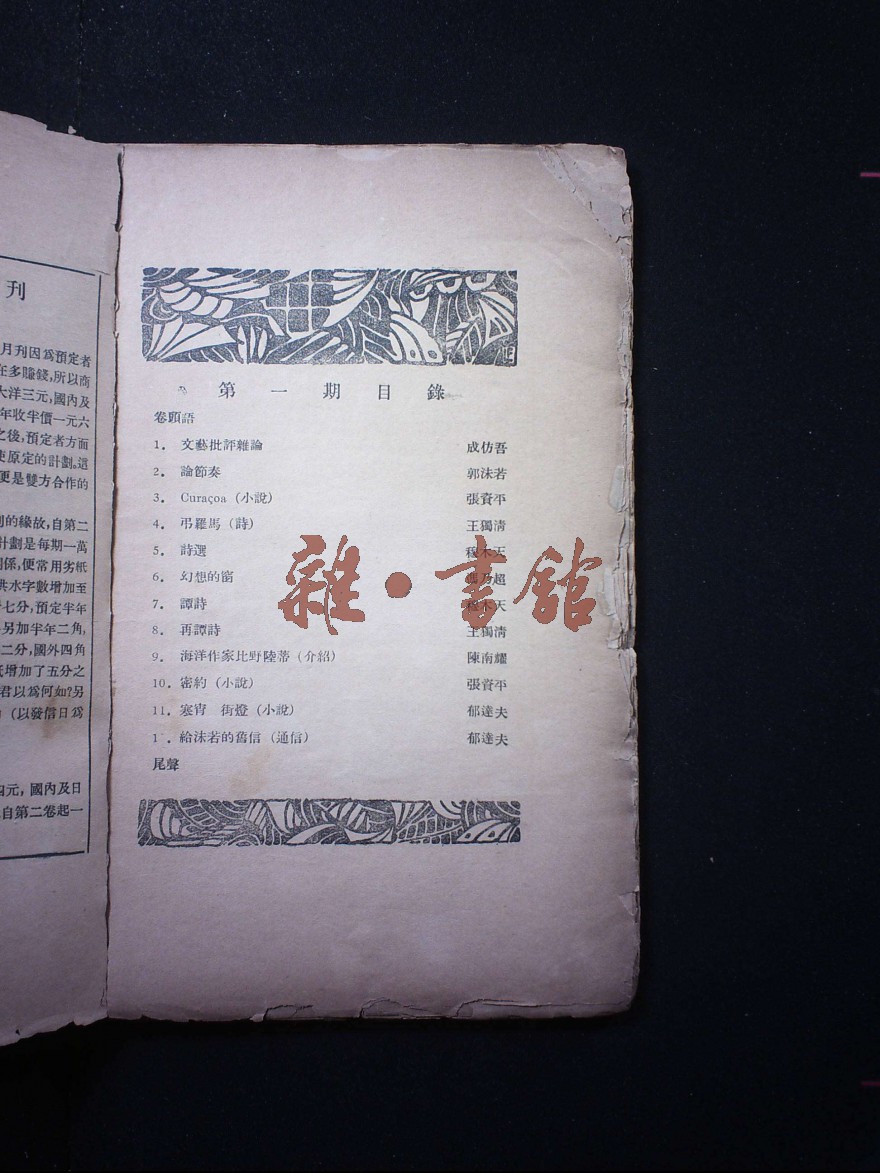 刊
月刊因爲預定者
在多賺錢,所以商
大洋三元,國內及
年收半價一元六
之後,預定者方面
使原定的計劃。這
更是雙方合作的
的緣故,自第二
計劃是每期一萬
關係,便常用劣紙
洪水字數增加至
七分,預定半年
另加半年二角,
二分,國外四角
增加了五分之
君以爲何如?另
(以發信日爲
四元,國內及日
自第二卷起一
第一期目錄
卷頭語
1. 文藝批評雜論 成仿吾
2. 論節奏 郭沫若
3. Curaçoa (小說) 張資平
4. 弔羅馬 (詩) 王獨淸
5. 詩選 穆木天
6. 幻想的窗 馮乃超
7. 譚詩 穆木天
8. 再譚詩 王獨淸
9. 海洋作家比野陸蒂 (介紹) 陳南耀
10. 密約 (小說) 張資平
11. 寒宵 街燈 (小說) 郁達夫
1 . 給沫若的舊信 (通信) 郁達夫
尾聲
雜·書館